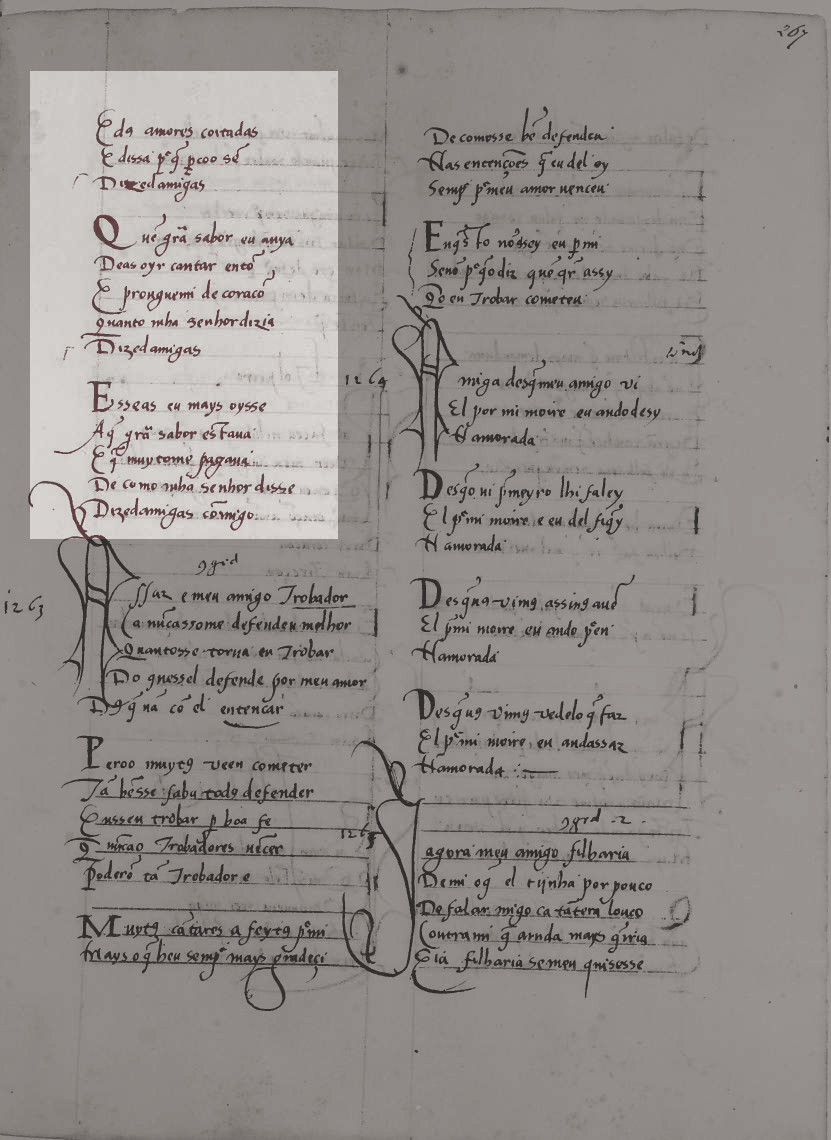 267
E d9 amores coitadas
E dissa p̄ q̄ p̱coo sē
Dizedamigas
Que grã sabor eu auya
Deas oyr cantar entō
E prouguemi de coraçō
Quanto mha senhor dizia
Dizedamigas
Esseas eu mays oysse
A q̄ grã sabor estaua
E q̄ muytome pagaua
De como mha senhor disse
Dizedamigas cōmigo
1263
Assaz e meu amigo Trobador
Ca nūcassome defendeu melhor
Quantosse torna en Trobar
Do quessel defende por meu amor
D9 q̄ uã cō el entençar
Peroo muyt9 veen cometer
Tã bēsse sabu tod9 defender
Eusseu trobar p̱ boa fe
Q̄ nūcao Trobadores uēcer
Poderō tã Trobador e
Muyt9 cãtares a feyt9 p̄ mi
Mays o q̄ lheu semp̄ mays gradeçi
De comosse bē defendeu
Nas entenções q̄ eu del oy
Semp̄ p̄ meu amor uenceu
E aq̄sto nō o ssey eu p̱ mi
Senō p̄ q̄ o diz quē q̄r assy
Q̄o eu Trobar cometeu
1264
Amiga desq̄ meu amigo vi
El por mi moire eu ando desy
Namorada
Desq̄o ui p̄meyro lhi faley
El p̄ mi moire e eu del fiq̄y
Namorada
Desq̄ n9 vim9 assin g auē
El p̄ mi moire eu ando p̄ en
Namorada
Desq̄ n9 vim9 vedelo q̄ faz
El p̄ mi moire eu andassaz
Namorada
1265
Jagora meu amigo filharia
De mi o q̄ el tijnha por pouco
De falar migo ca tãtera louco
Contra mi q̄ aīnda mays q̄ria
E ia filharia se meu quisesse